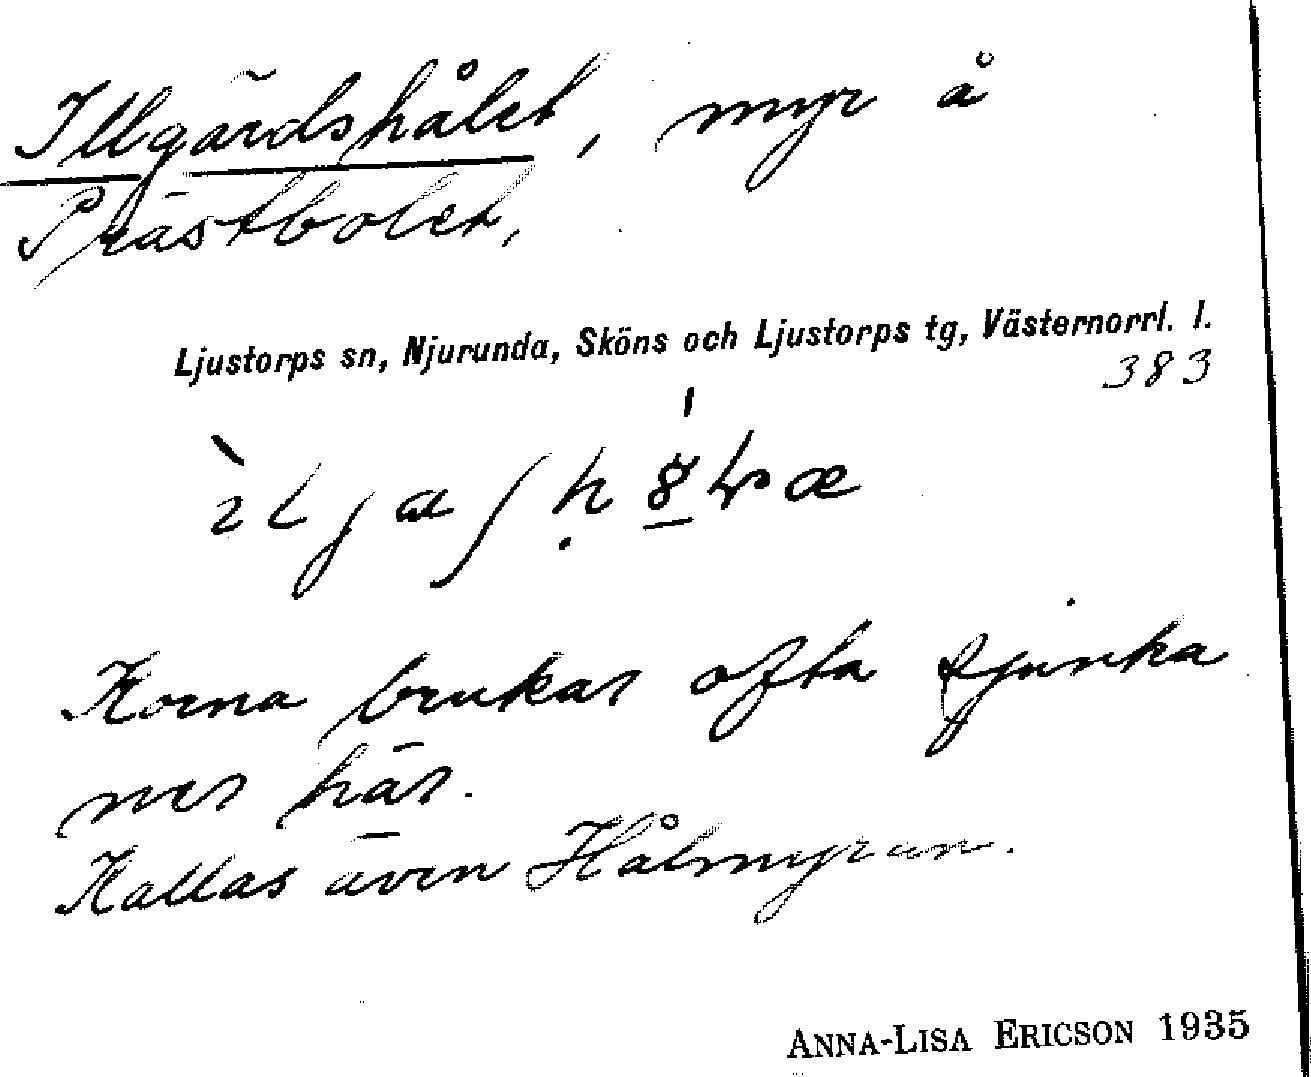 Illgärdshålet, myr å
Prästbolet,
Ljustorps sn, Njurunda, Sköns och Ljustorps tg, Västernorrl. l.
383
Korna brukar ofta sjunka
ner här.
Kallas även Hålmyran.
ANNA-LISA ERICSON 1935